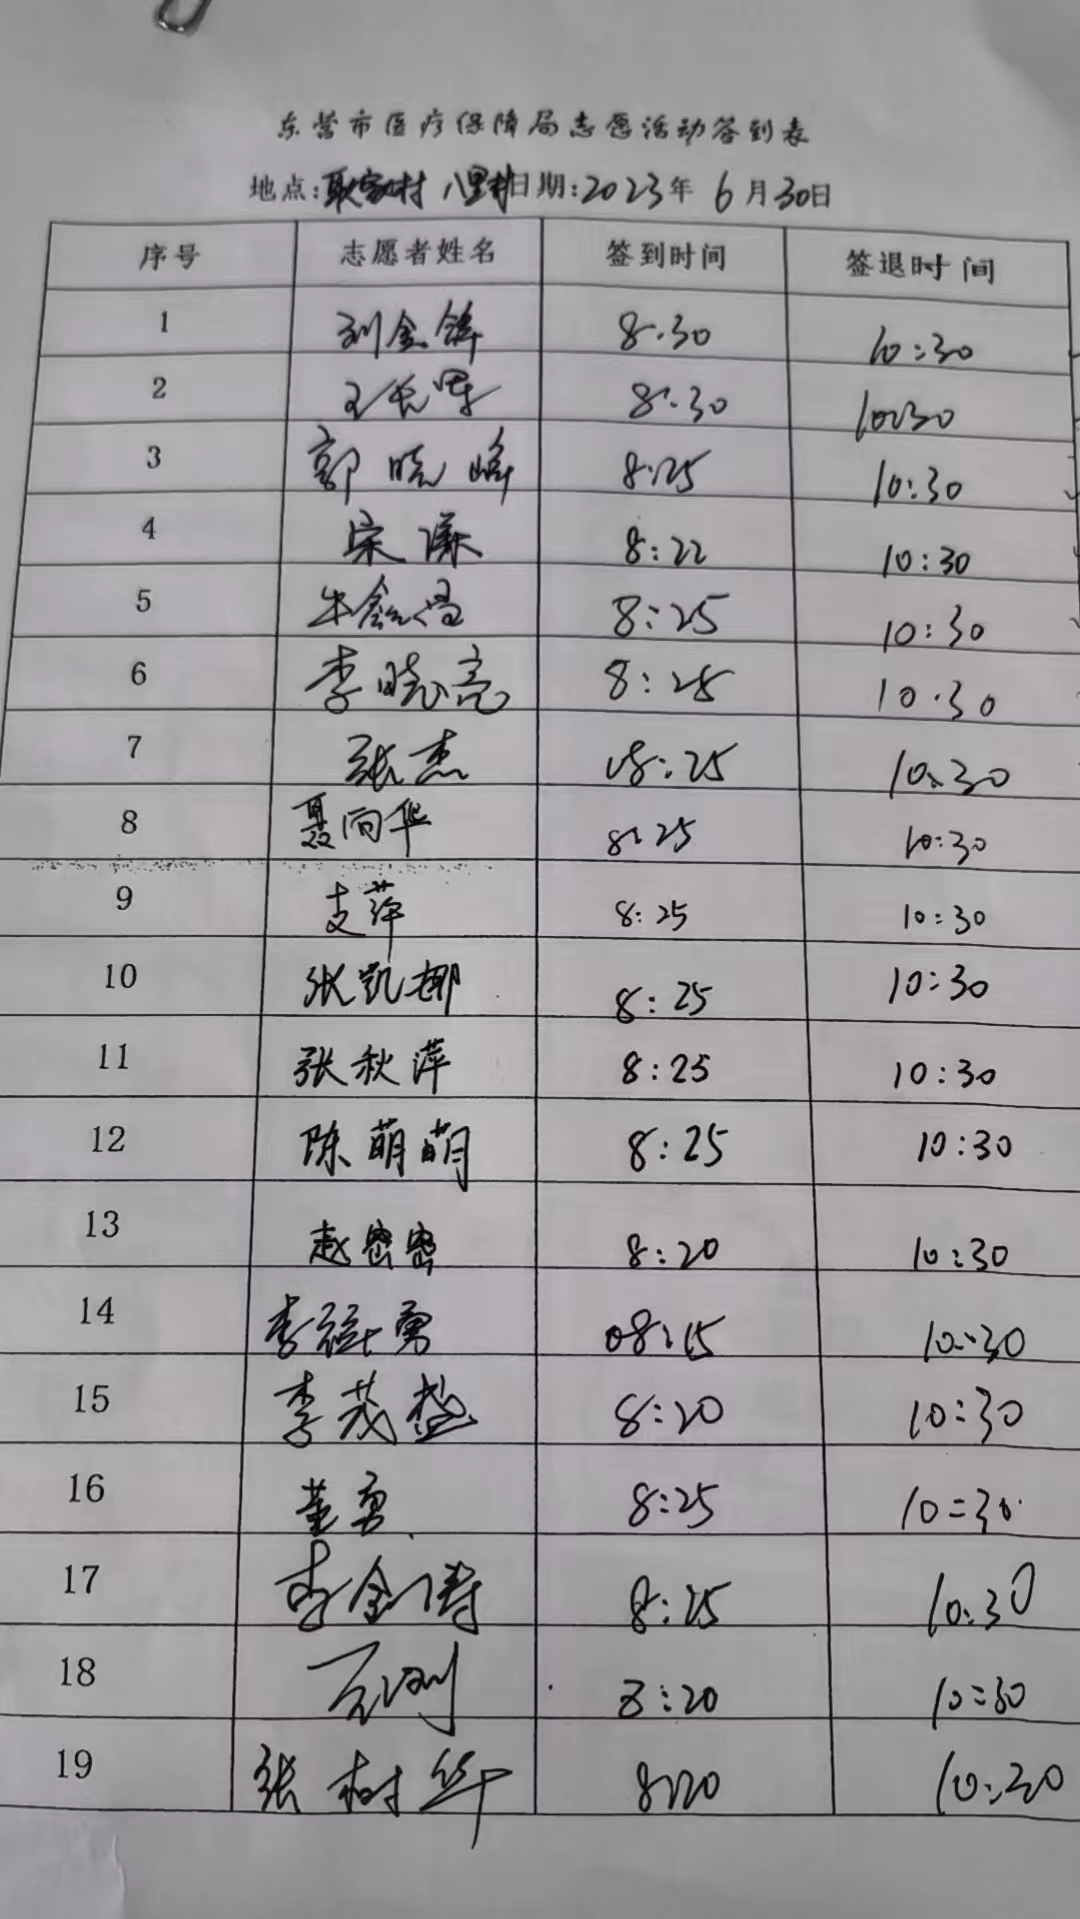 东营市医疗保障局志愿活动签到表
地点:耿家村 八里村日期:2023年 6月30日
序号 志愿者姓名 签到时间 签退时间
1 刘金锋 8:30 10:30
2 8:30 10:30
3 郭晓峰 8:25 10:30
4 宋谦 8:22 10:30
5 8:25 10:30
6 李晓亮 8:25 10:30
7 张杰 08:25 10:30
8 聂向华 8:25 10:30
9 支萍 8:25 10:30
10 张凯娜 8:25 10:30
11 张秋萍 8:25 10:30
12 陈萌萌 8:25 10:30
13 赵密密 8:20 10:30
14 08:15 10:30
15 李茂盛 8:20 10:30
16 董勇 8:25 10:30
17 李金涛 8:25 10:30
18 8:20 10:30
19 张树华 8:20 10:30